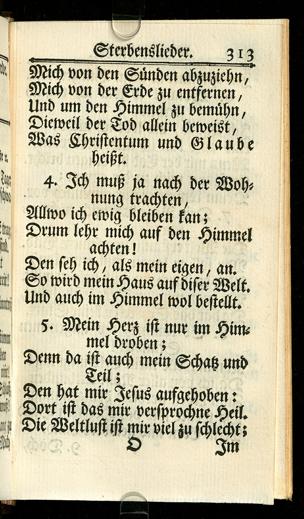 Sterbenslieder. 313
Mich von den Sünden abzuziehn,
Mich von der Erde zu entfernen,
Und um den Himmel zu bemühn,
Dieweil der Tod allein beweist,
Was Christentum und Glaube
heißt.
4. Ich muß ja nach der Woh-
nung trachten,
Allwo ich ewig bleiben kan;
Drum lehr mich auf den Himmel
achten!
Den seh ich, als mein eigen, an.
So wird mein Haus auf diser Welt.
Und auch im Himmel wol bestellt.
5. Mein Herz ist nur im Him-
mel droben;
Denn da ist auch mein Schatz und
Teil;
Den hat mir Jesus aufgehoben:
Dort ist das mir versprochne Heil.
Die Weltlust ist mir viel zu schlecht;
O Im